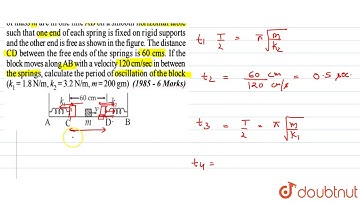 of mass m are in one line AB on a smooth horizontal table
such that one end of each spring is fixed on rigid supports
and the other end is free as shown in the figure. The distance
CD between the free ends of the springs is 60 cms. If the
block moves along AB with a velocity 120 cm/sec in between
the springs, calculate the period of oscillation of the block
(k₁ = 1.8 N/m, k₂ = 3.2 N/m, m = 200 gm) (1985 - 6 Marks)
60 cm
k₁ v
A C m D B
t₁ T/2 = π√(m/k₂)
t₂ = 60 cm / 120 cm/s = 0.5 sec
t₃ = T/2 = π√(m/k₁)
t₄ =
doubtnut